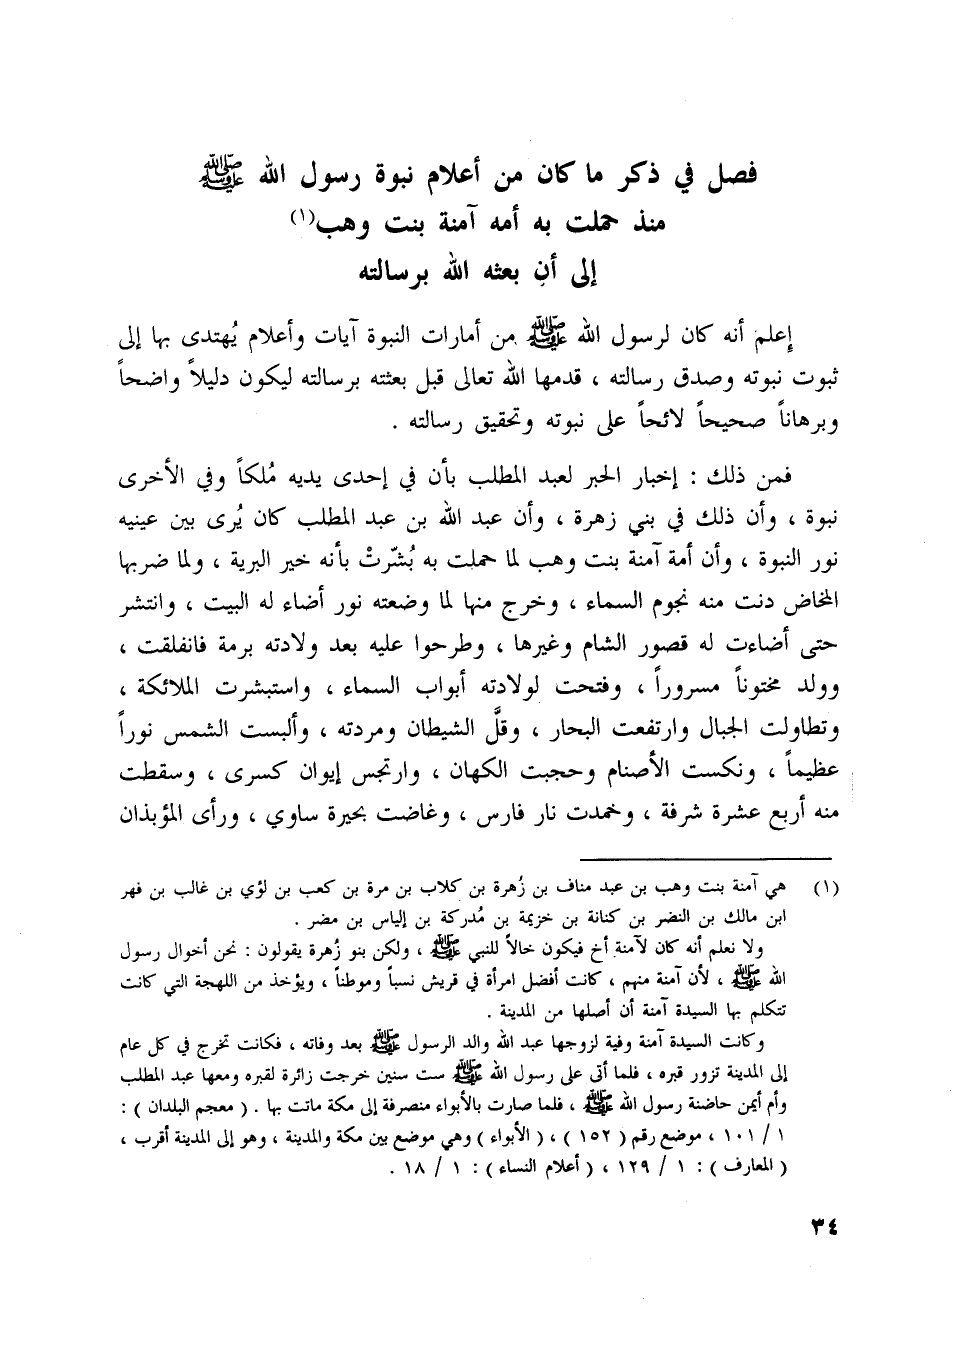 فصل في ذكر ما كان من أعلام نبوة رسول الله ﷺ
منذ حملت به أمه آمنة بنت وهب(١)
إلى أن بعثه الله برسالته
إعلم أنه كان لرسول الله ﷺ من أمارات النبوة آيات وأعلام يُهتدى بها إلى
ثبوت نبوته وصدق رسالته ، قدمها الله تعالى قبل بعثته برسالته ليكون دليلاً واضحاً
وبرهاناً صحيحاً لائحاً على نبوته وتحقيق رسالته .
فمن ذلك : إخبار الحبر لعبد المطلب بأن في إحدى يديه مُلكاً وفي الأخرى
نبوة ، وأن ذلك في بني زهرة ، وأن عبد الله بن عبد المطلب كان يُرى بين عينيه
نور النبوة ، وأن أمة آمنة بنت وهب لما حملت به بُشّرتْ بأنه خير البرية ، ولما ضربها
المخاض دنت منه نجوم السماء ، وخرج منها لما وضعته نور أضاء له البيت ، وانتشر
حتى أضاءت له قصور الشام وغيرها ، وطرحوا عليه بعد ولادته برمة فانفلقت ،
وولد مختوناً مسروراً ، وفتحت لولادته أبواب السماء ، واستبشرت الملائكة ،
وتطاولت الجبال وارتفعت البحار ، وقلَّ الشيطان ومردته ، وألبست الشمس نوراً
عظيماً ، ونكست الأصنام وحجبت الكهان ، وارتجس إيوان كسرى ، وسقطت
منه أربع عشرة شرفة ، وخمدت نار فارس ، وغاضت بحيرة ساوي ، ورأى المؤبذان
(١) هي آمنة بنت وهب بن عبد مناف بن زُهرة بن كلاب بن مرة بن كعب بن لؤي بن غالب بن فهر
ابن مالك بن النضر بن كنانة بن خزيمة بن مُدركة بن إلياس بن مضر .
ولا نعلم أنه كان لآمنة أخ فيكون خالاً للنبي ﷺ ، ولكن بنو زُهرة يقولون : نحن أخوال رسول
الله ﷺ ، لأن آمنة منهم ، كانت أفضل امرأة في قريش نسباً وموطناً ، ويؤخذ من اللهجة التي كانت
تتكلم بها السيدة آمنة أن أصلها من المدينة .
وكانت السيدة آمنة وفية لزوجها عبد الله والد الرسول ﷺ بعد وفاته ، فكانت تخرج في كل عام
إلى المدينة تزور قبره ، فلما أتى على رسول الله ﷺ ست سنين خرجت زائرة لقبره ومعها عبد المطلب
وأم أيمن حاضنة رسول الله ﷺ ، فلما صارت بالأبواء منصرفة إلى مكة ماتت بها . ( معجم البلدان ) :
١ / ١٠١ ، موضع رقم ( ١٥٢ ) ، ( الأبواء ) وهي موضع بين مكة والمدينة ، وهو إلى المدينة أقرب ،
( المعارف ) : ١ / ١٢٩ ، ( أعلام النساء ) : ١ / ١٨ .
٣٤